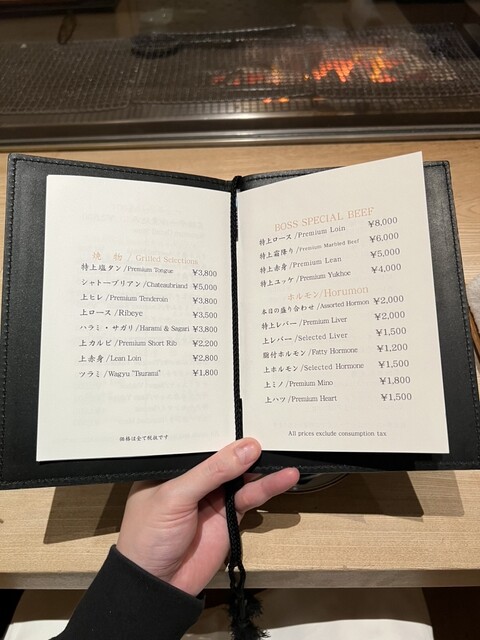 焼 物 / Grilled Selections
特上塩タン/Premium Tongue ¥3,800
シャトーブリアン/Chateaubriand ¥5,000
上ヒレ/Premium Tenderoin ¥3,800
上ロース/Ribeye ¥3,500
ハラミ・サガリ/Harami & Sagari ¥3,800
上カルビ/Premium Short Rib ¥2,200
上赤身/Lean Loin ¥2,800
ツラミ/Wagyu "Tsurami" ¥1,800
価格は全て税抜です
BOSS SPECIAL BEEF
特上ロース/Premium Loin ¥8,000
特上霜降り/Premium Marbled Beef ¥6,000
特上赤身/Premium Lean ¥5,000
特上ユッケ/Premium Yukhoe ¥4,000
ホルモン/Horumon
本日の盛り合わせ/Assorted Hormon ¥2,000
特上レバー/Premium Liver ¥2,000
上レバー/Selected Liver ¥1,500
脂付ホルモン/Fatty Hormone ¥1,200
上ホルモン/Selected Hormone ¥1,500
上ミノ/Premium Mino ¥1,800
上ハツ/Premium Heart ¥1,500
All prices exclude consumption tax